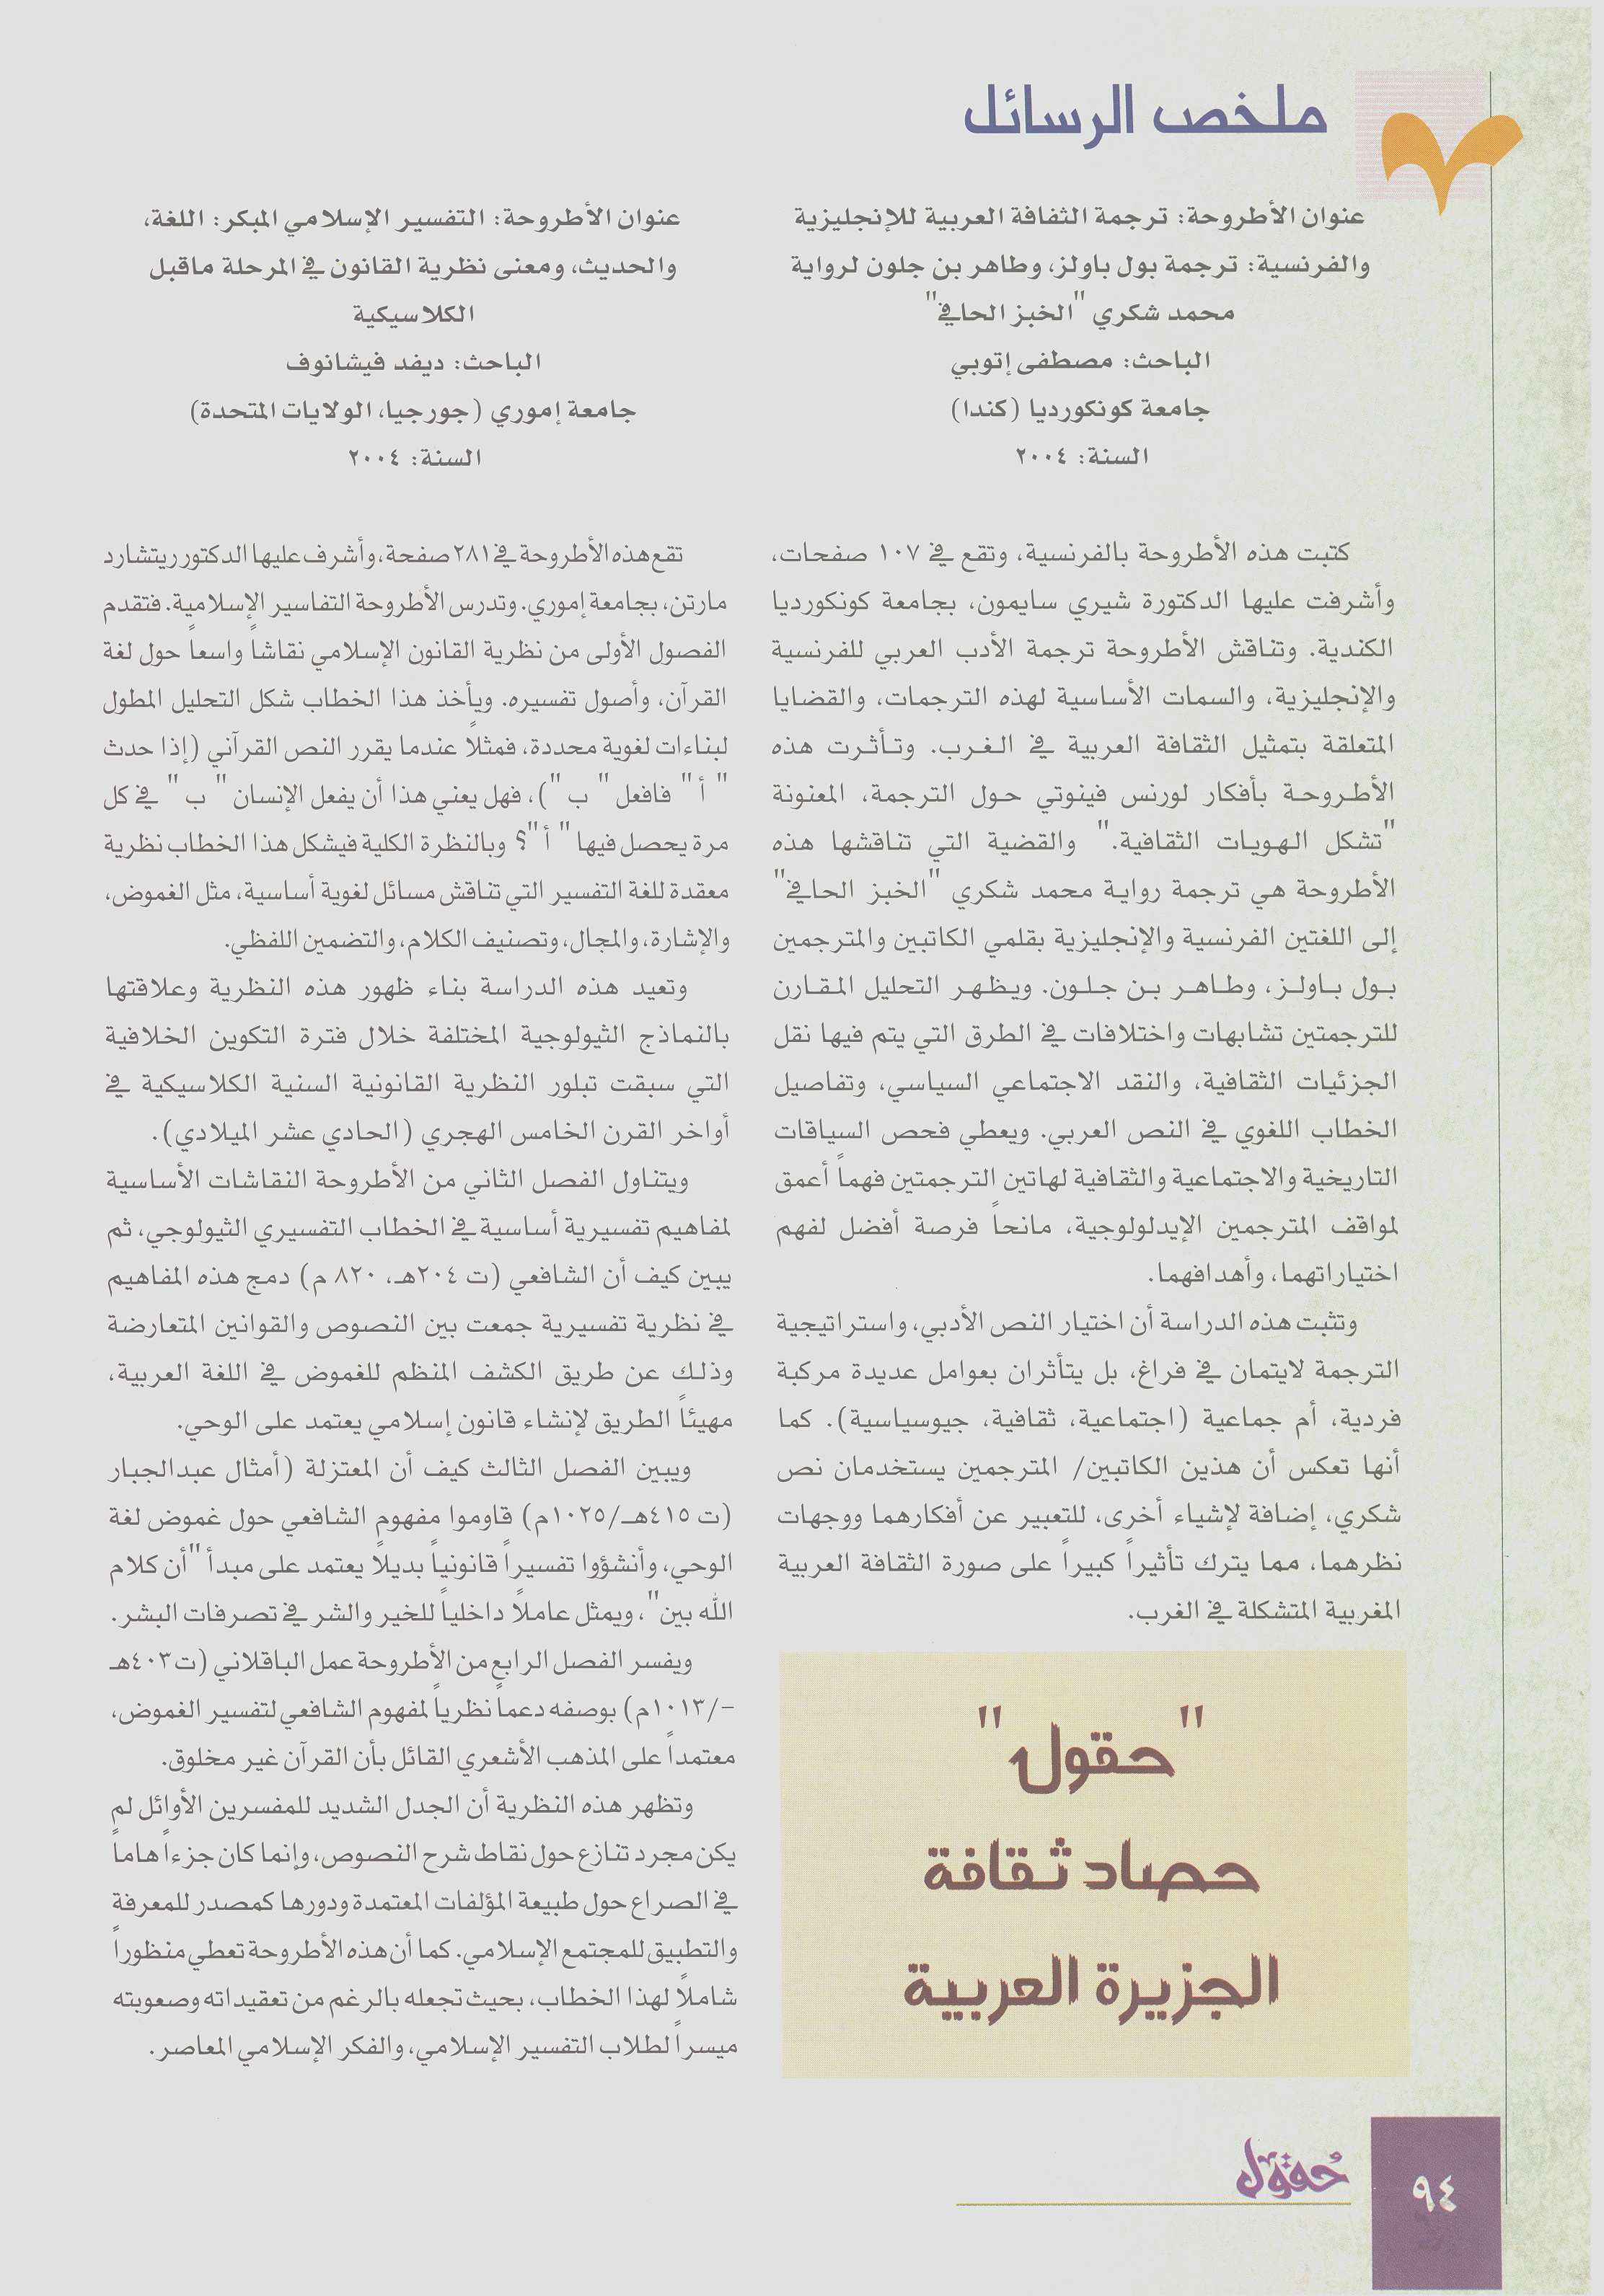 ملخص الرسائل
عنوان الأطروحة: ترجمة الثقافة العربية للإنجليزية
والفرنسية: ترجمة بول باولز، وطاهر بن جلون لرواية
محمد شكري "الخبز الحافي"
الباحث: مصطفى إتوبي
جامعة كونكورديا (كندا)
السنة: ٢٠٠٤
كتبت هذه الأطروحة بالفرنسية، وتقع في ١٠٧ صفحات،
وأشرفت عليها الدكتورة شيري سايمون، بجامعة كونكورديا
الكندية. وتناقش الأطروحة ترجمة الأدب العربي للفرنسية
والإنجليزية، والسمات الأساسية لهذه الترجمات، والقضايا
المتعلقة بتمثيل الثقافة العربية في الغرب. وتأثرت هذه
الأطروحة بأفكار لورنس فينوتي حول الترجمة، المعنونة
"تشكل الهويات الثقافية." والقضية التي تناقشها هذه
الأطروحة هي ترجمة رواية محمد شكري "الخبز الحافي"
إلى اللغتين الفرنسية والإنجليزية بقلمي الكاتبين والمترجمين
بول باولز، وطاهر بن جلون. ويظهر التحليل المقارن
للترجمتين تشابهات واختلافات في الطرق التي يتم فيها نقل
الجزئيات الثقافية، والنقد الاجتماعي السياسي، وتفاصيل
الخطاب اللغوي في النص العربي. ويعطي فحص السياقات
التاريخية والاجتماعية والثقافية لهاتين الترجمتين فهماً أعمق
لمواقف المترجمين الإيدلولوجية، مانحاً فرصة أفضل لفهم
اختياراتهما، وأهدافهما.
وتثبت هذه الدراسة أن اختيار النص الأدبي، واستراتيجية
الترجمة لايتمان في فراغ، بل يتأثران بعوامل عديدة مركبة
فردية، أم جماعية (اجتماعية، ثقافية، جيوسياسية). كما
أنها تعكس أن هذين الكاتبين/ المترجمين يستخدمان نص
شكري، إضافة لإشياء أخرى، للتعبير عن أفكارهما ووجهات
نظرهما، مما يترك تأثيراً كبيراً على صورة الثقافة العربية
المغربية المتشكلة في الغرب.
"حقول"
حصاد ثقافة
الجزيرة العربية
عنوان الأطروحة: التفسير الإسلامي المبكر: اللغة،
والحديث، ومعنى نظرية القانون في المرحلة ماقبل
الكلاسيكية
الباحث: ديفد فيشانوف
جامعة إموري (جورجيا، الولايات المتحدة)
السنة: ٢٠٠٤
تقع هذه الأطروحة في ٢٨١ صفحة، وأشرف عليها الدكتور ريتشارد
مارتن، بجامعة إموري. وتدرس الأطروحة التفاسير الإسلامية. فتقدم
الفصول الأولى من نظرية القانون الإسلامي نقاشاً واسعاً حول لغة
القرآن، وأصول تفسيره. ويأخذ هذا الخطاب شكل التحليل المطول
لبناءات لغوية محددة، فمثلاً عندما يقرر النص القرآني (إذا حدث
" أ " فافعل " ب ")، فهل يعني هذا أن يفعل الإنسان " ب " في كل
مرة يحصل فيها " أ "؟ وبالنظرة الكلية فيشكل هذا الخطاب نظرية
معقدة للغة التفسير التي تناقش مسائل لغوية أساسية، مثل الغموض،
والإشارة، والمجال، وتصنيف الكلام، والتضمين اللفظي.
وتعيد هذه الدراسة بناء ظهور هذه النظرية وعلاقتها
بالنماذج الثيولوجية المختلفة خلال فترة التكوين الخلافية
التي سبقت تبلور النظرية القانونية السنية الكلاسيكية في
أواخر القرن الخامس الهجري (الحادي عشر الميلادي).
ويتناول الفصل الثاني من الأطروحة النقاشات الأساسية
لمفاهيم تفسيرية أساسية في الخطاب التفسيري الثيولوجي، ثم
يبين كيف أن الشافعي (ت ٢٠٤هـ، ٨٢٠ م) دمج هذه المفاهيم
في نظرية تفسيرية جمعت بين النصوص والقوانين المتعارضة
وذلك عن طريق الكشف المنظم للغموض في اللغة العربية،
مهيئاً الطريق لإنشاء قانون إسلامي يعتمد على الوحي.
ويبين الفصل الثالث كيف أن المعتزلة (أمثال عبدالجبار
(ت ٤١٥هـ/١٠٢٥م) قاوموا مفهوم الشافعي حول غموض لغة
الوحي، وأنشؤوا تفسيراً قانونياً بديلاً يعتمد على مبدأ "أن كلام
الله بين"، ويمثل عاملاً داخلياً للخير والشر في تصرفات البشر.
ويفسر الفصل الرابع من الأطروحة عمل الباقلاني (ت ٤٠٣هـ
-/١٠١٣م) بوصفه دعماً نظرياً لمفهوم الشافعي لتفسير الغموض،
معتمداً على المذهب الأشعري القائل بأن القرآن غير مخلوق.
وتظهر هذه النظرية أن الجدل الشديد للمفسرين الأوائل لم
يكن مجرد تنازع حول نقاط شرح النصوص، وإنما كان جزءاً هاماً
في الصراع حول طبيعة المؤلفات المعتمدة ودورها كمصدر للمعرفة
والتطبيق للمجتمع الإسلامي. كما أن هذه الأطروحة تعطي منظوراً
شاملاً لهذا الخطاب، بحيث تجعله بالرغم من تعقيداته وصعوبته
ميسراً لطلاب التفسير الإسلامي، والفكر الإسلامي المعاصر.
حقول
٩٤